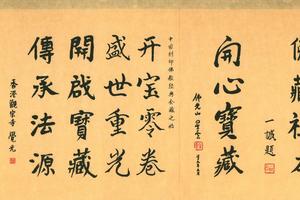 一誠題
開心寶藏
佛光山 星雲
中國刻印佛教經典全藏之始
开宝零卷
盛世重光
開啟寶藏
傳承法源
香港觀宗寺 覺光